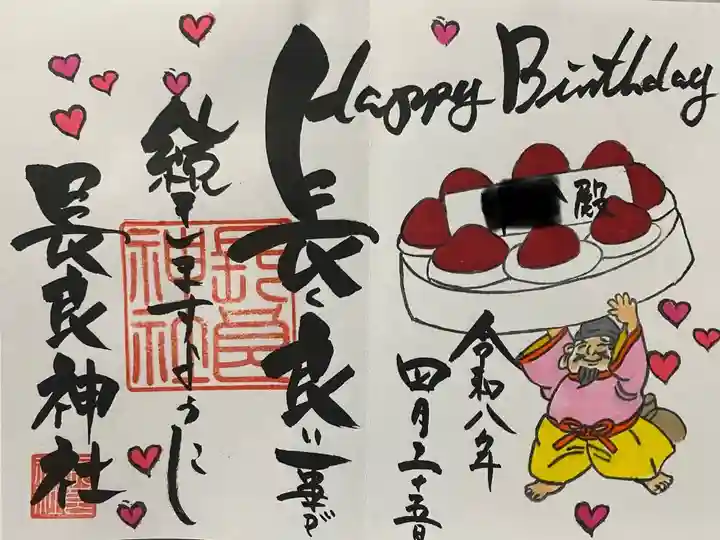 Happy Birthday
殿
令和八年
四月二十五日
長く良い一年が
続きますように
長良神社
長良神社